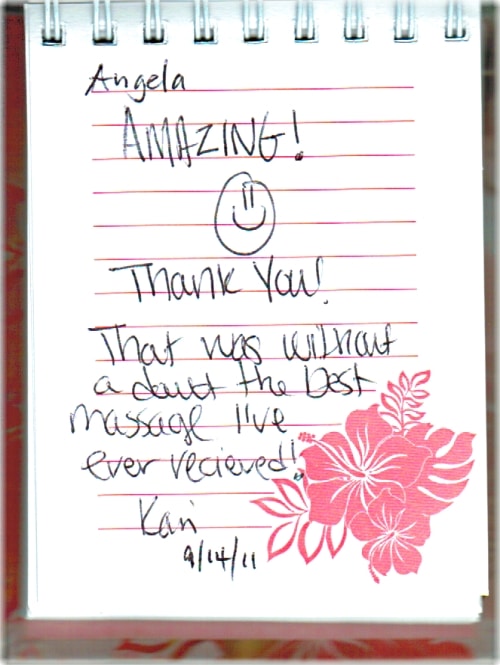 Angela
AMAZING!
Thank You!
That was without
a daut the best
massage I've
ever recieved!
Kari
9/14/11